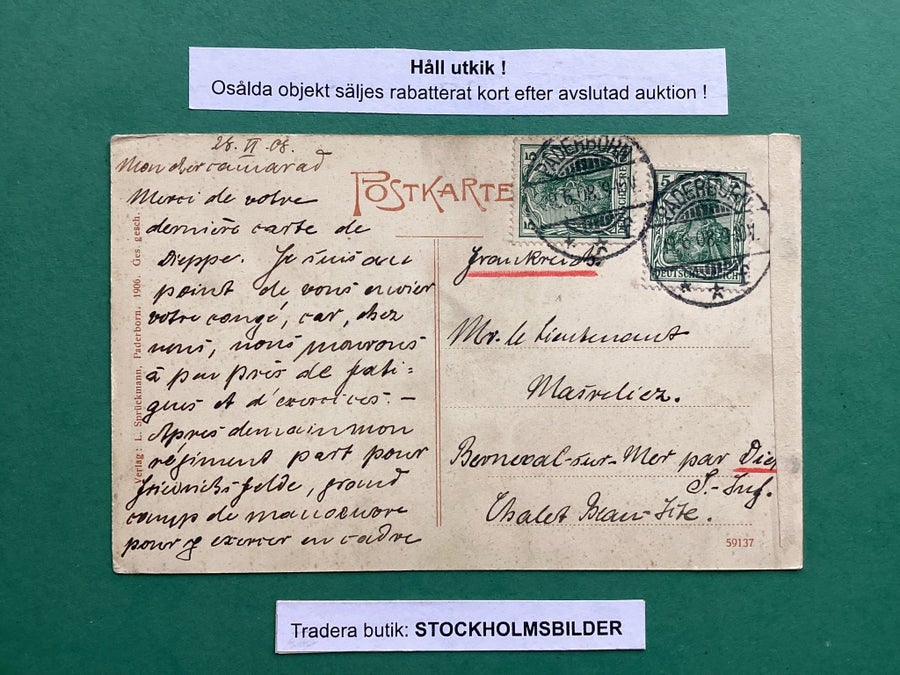 Håll utkik !
Osålda objekt säljes rabatterat kort efter avslutad auktion !
28.VI.08.
Mon cher camarad
Merci de votre
dernière carte de
Dieppe. Je suis au
point de vous envier
votre congé, car, chez
nous, nous mourons
à peu près de fati=
gues et d'exercices. –
Après demain mon
régiment part pour
Friedrichsfelde, grand
camp de manoeuvre
pour y exercer en cadre
Verlag: L. Sprückmann, Paderborn. 1906. Ges. gesch.
POSTKARTE
PADERBORN
6.08.9-10
PADERBORN
6.08.
DEUTSCHES REICH
Frankreich.
Mr. le lieutenant
Masreliez.
Berneval-sur-Mer par
S.-Inf.
Chalet Beau-Site.
59137
Tradera butik: STOCKHOLMSBILDER